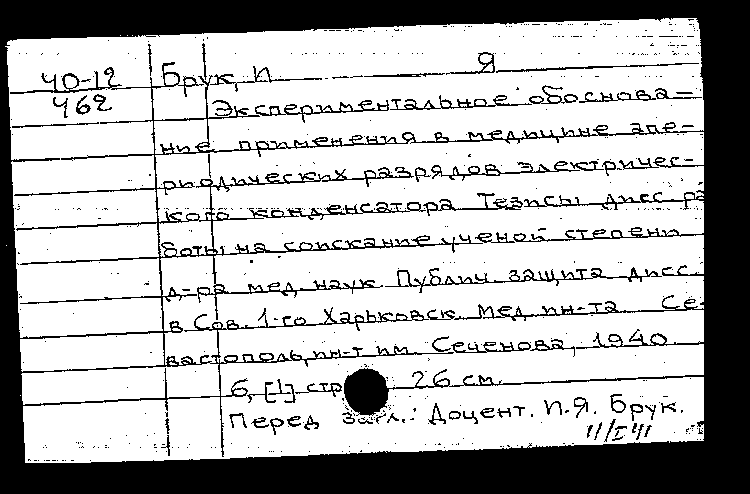 40-12
462
Брук, И. Я
Экспериментальное обоснова-
ние применения в медицине апе-
риодических разрядов электричес-
кого конденсатора Тезисы дисс. ра
боты на соискание ученой степени
д-ра мед. наук. Публич. защита дисс.
в Сов. 1-го Харьковск. мед. ин-та. Се-
вастополь, ин-т им. Сеченова, 1940.
6, [1] стр. 26 см.
Перед загл.: Доцент. И.Я. Брук.
11/I 41